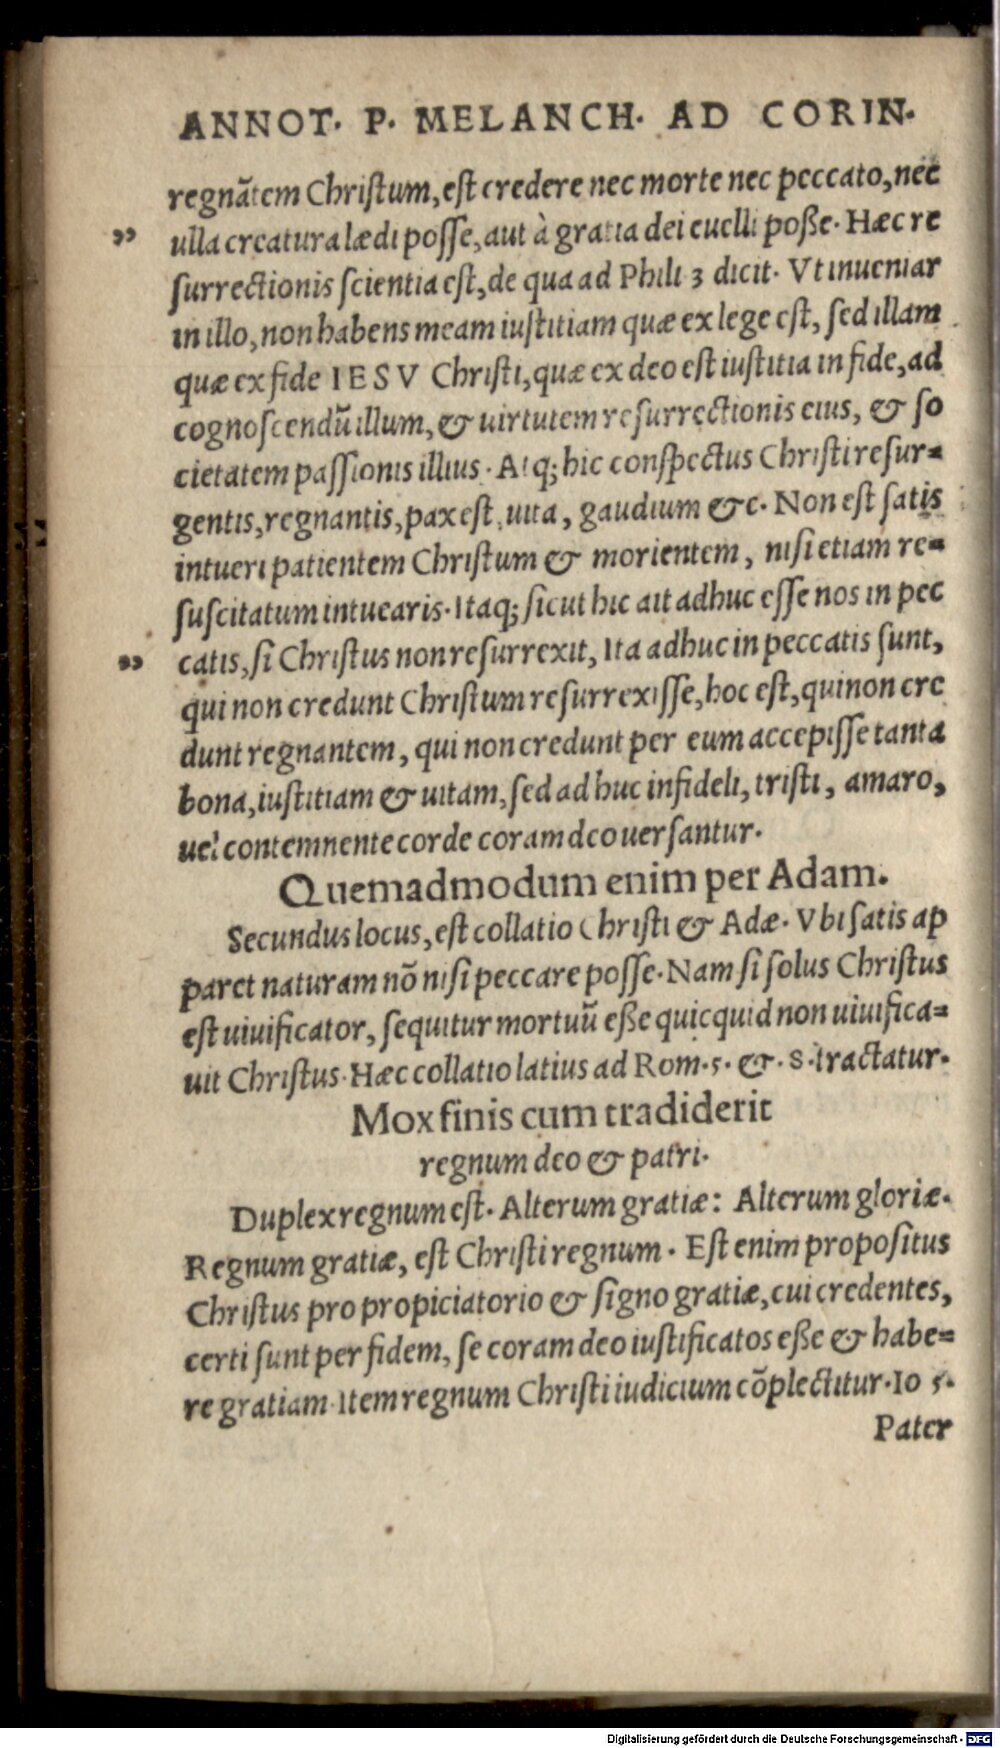 ANNOT. P. MELANCH. AD CORIN.
regnãtem Chriſtum, eſt credere nec morte nec peccato, nec
” ulla creatura lædi poſſe, aut à gratia dei euelli poße. Hæc re
ſurrectionis ſcientia eſt, de qua ad Phili 3 dicit. Vt inueniar
in illo, non habens meam iuſtitiam quæ ex lege eſt, ſed illam
quæ ex fide IESV Chriſti, quæ ex deo eſt iuſtitia in fide, ad
cognoſcendũ illum, & uirtutem reſurrectionis eius, & ſo
cietatem paſſionis illius. Atq; hic conſpectus Chriſti reſur=
gentis, regnantis, pax eſt, uita, gaudium &c. Non eſt ſatis
intueri patientem Chriſtum & morientem, niſi etiam re=
ſuſcitatum intuearis. Itaq; ſicut hic ait adhuc eſſe nos in pec
” catis, ſi Chriſtus non reſurrexit, Ita adhuc in peccatis ſunt,
qui non credunt Chriſtum reſurrexiſſe, hoc eſt, qui non cre
dunt regnantem, qui non credunt per eum accepiſſe tanta
bona, iuſtitiam & uitam, ſed ad huc infideli, triſti, amaro,
uel contemnente corde coram deo uerſantur.
Quemadmodum enim per Adam.
Secundus locus, eſt collatio Chriſti & Adæ. Vbi ſatis ap
paret naturam nõ niſi peccare poſſe. Nam ſi ſolus Chriſtus
eſt uiuificator, ſequitur mortuũ eße quicquid non uiuifica=
uit Chriſtus. Hæc collatio latius ad Rom. 5. &. 8. tractatur.
Mox finis cum tradiderit
regnum deo & patri.
Duplex regnum eſt. Alterum gratiæ: Alterum gloriæ.
Regnum gratiæ, eſt Chriſti regnum. Eſt enim propoſitus
Chriſtus pro propiciatorio & ſigno gratiæ, cui credentes,
certi ſunt per fidem, ſe coram deo iuſtificatos eße & habe=
re gratiam. Item regnum Chriſti iudicium cõplectitur. Io 5.
Pater
Digitalisierung gefördert durch die Deutsche Forschungsgemeinschaft - DFG